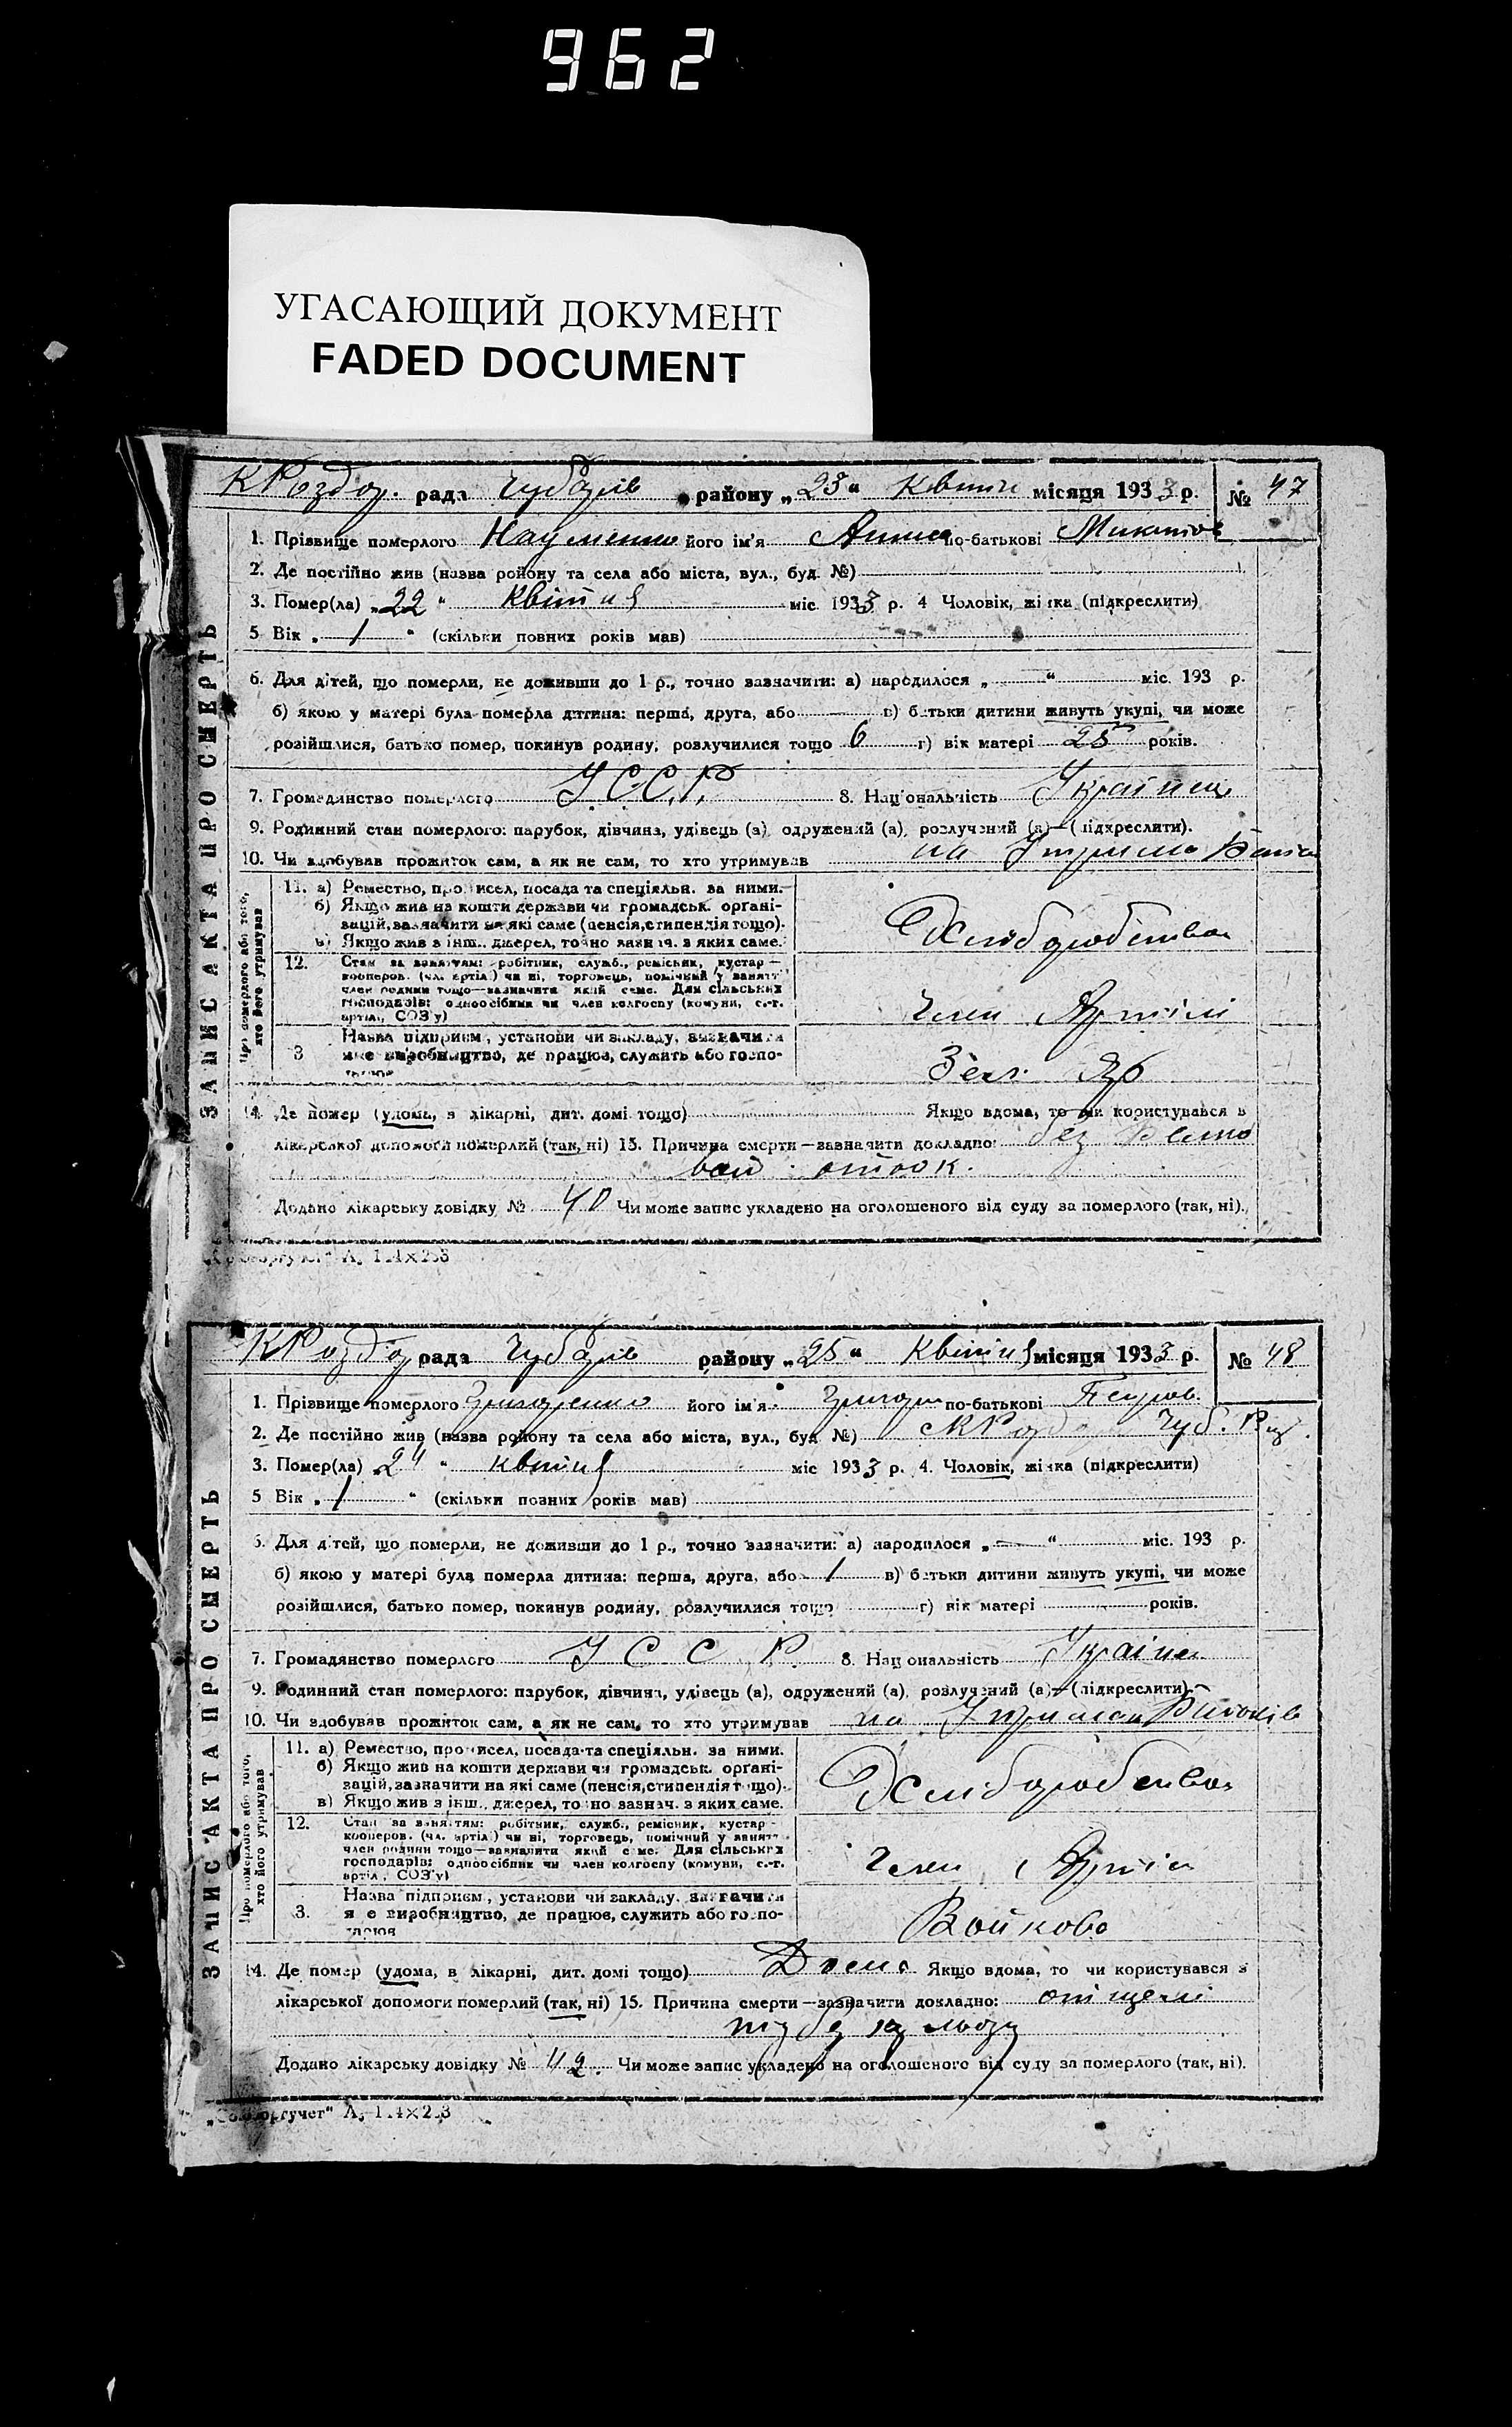 962
УГАСАЮЩИЙ ДОКУМЕНТ
FADED DOCUMENT
КРоздор. рада Чубарів району „23“ Квітня місяця 1933 р. № 47
ЗАПИС АКТА ПРО СМЕРТЬ
1. Прізвище померлого Науменко його ім'я Анна по-батькові Микитов
2. Де постійно жив (назва району та села або міста, вул., буд. №)
3. Помер(ла) „22“ Квітня міс. 1933 р. 4 Чоловік, жінка (підкреслити)
5 Вік „1“ (скільки повних років мав)
6. Для дітей, що померли, не доживши до 1 р., точно зазначити: а) народилося „—“ міс. 193 р.
б) якою у матері була померла дитина: перша, друга, або — в) батьки дитини живуть укупі, чи може
розійшлися, батько помер, покинув родину, розлучилися тощо 6 г) вік матері 25 років.
7. Громадянство померлого У.С.С.Р. 8. Національність Українець
9. Родинний стан померлого: парубок, дівчина, удівець (а), одружений (а), розлучений (а)—(підкреслити).
10. Чи здобував прожиток сам, а як не сам, то хто утримував на Утрима Батьк
Про померлого або того, хто його утримував
11. а) Ремество, промисел, посада та спеціяльн. за ними.
б) Якщо жив на кошти держави чи громадськ. органі-
зацій, зазначити на які саме (пенсія, стипендія тощо).
в) Якщо жив з інш. джерел, точно зазнач. з яких саме.
Хліборобства
12. Стан за заняттям: робітник, служб., ремісник, кустар—
кооперов. (чл. артілі) чи ні, торговець, помічний у занятт.
член родини тощо—зазначити який саме. Для сільських
господарів: одноосібник чи член колгоспу (комуни, с.-г.
артілі, СОЗ'у)
Член Артілі
3 Назва підприєм., установи чи закладу, зазначити
яке виробництво, де працює, служить або госпо-
Зел. Яр
14. Де помер (удома, в лікарні, дит. домі тощо) Якщо вдома, то чи користувався в
лікарської допомоги померлий (так, ні) 15. Причина смерти—зазначити докладно: без
отьок.
Додано лікарську довідку № 40 Чи може запис укладено на оголошеного від суду за померлого (так, ні).
А, 1.4×2.3
КРоздор рада Чубарів району „25“ Квітня місяця 1933 р. № 48
ЗАПИС АКТА ПРО СМЕРТЬ
1. Прізвище померлого Григоренко його ім'я Григорій по-батькові Петров.
2. Де постійно жив (назва району та села або міста, вул., буд. №) КРозд Чуб. Рай.
3. Помер(ла) „24“ квітня міс 1933 р. 4. Чоловік, жінка (підкреслити)
5 Вік „1“ (скільки повних років мав)
6. Для дітей, що померли, не доживши до 1 р., точно зазначити: а) народилося „—“ міс. 193 р.
б) якою у матері була померла дитина: перша, друга, або 1 в) батьки дитини живуть укупі, чи може
розійшлися, батько помер, покинув родину, розлучилися тощо г) вік матері років.
7. Громадянство померлого У С С Р. 8. Національність Українец
9. Родинний стан померлого: парубок, дівчина, удівець (а), одружений (а), розлучений (а)—(підкреслити).
10. Чи здобував прожиток сам, а як не сам, то хто утримував на Утриман Батьків
Про померлого або того, хто його утримував
11. а) Ремество, промисел, посада та спеціяльн. за ними.
б) Якщо жив на кошти держави чи громадськ. органі-
зацій, зазначити на які саме (пенсія, стипендія тощо).
в) Якщо жив з інш. джерел, точно зазнач. з яких саме.
Хліборобства
12. Стан за заняттям: робітник, служб., ремісник, кустар-
кооперов. (чл. артілі) чи ні, торговець, помічний у занятт.
член родини тощо—зазначити який саме. Для сільських
господарів: одноосібник чи член колгоспу (комуни, с.-г.
артілі, СОЗ'у)
Член Артілі
3. Назва підприєм., установи чи закладу, зазначити
яке виробництво, де працює, служить або госпо-
Войкова
14. Де помер (удома, в лікарні, дит. домі тощо) Дома Якщо вдома, то чи користувався з
лікарської допомоги померлий (так, ні) 15. Причина смерти—зазначити докладно: від
туберкульозу
Додано лікарську довідку № 42. Чи може запис укладено на оголошеного від суду за померлого (так, ні).
„Союзоргучет“ А, 1.4×2.3